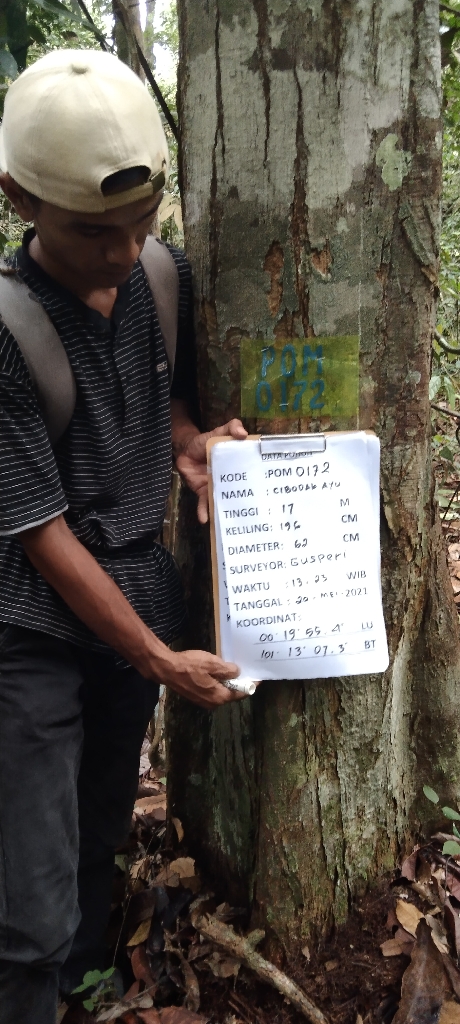 POM
0172
DATA POHON
KODE : POM 0172
NAMA : CIBODAK AYU
TINGGI : 17 M
KELILING: 196 CM
DIAMETER: 62 CM
SURVEYOR: GUSPERI
WAKTU : 13.23 WIB
TANGGAL : 20 - MEI - 2021
KOORDINAT:
00° 19' 55. 4" LU
101° 13' 07. 3" BT